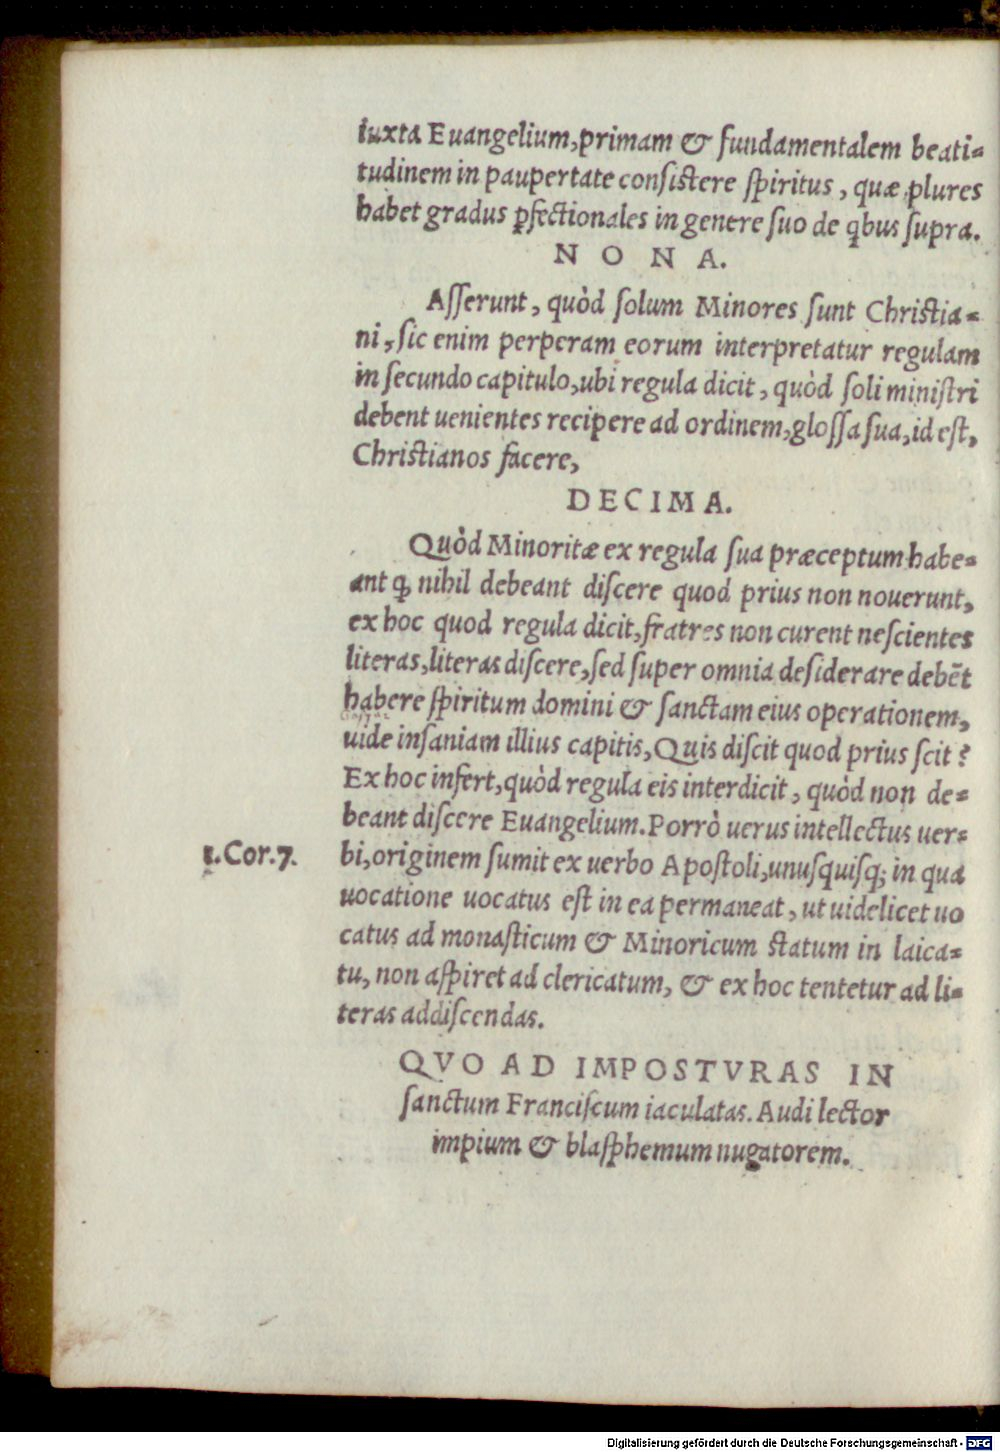 iuxta Euangelium,primam & fundamentalem beati=
tudinem in paupertate consistere spiritus, quæ plures
habet gradus ꝑfectionales in genere suo de qbus supra.
NONA.
Asserunt, quòd solum Minores sunt Christia=
ni, sic enim perperam eorum interpretatur regulam
in secundo capitulo,ubi regula dicit, quòd soli ministri
debent uenientes recipere ad ordinem,glossa sua,id est,
Christianos facere,
DECIMA.
Quòd Minoritæ ex regula sua præceptum habe=
ant ꝙ nihil debeant discere quod prius non nouerunt,
ex hoc quod regula dicit,fratres non curent nescientes
literas,literas discere,sed super omnia desiderare debēt
habere spiritum domini & sanctam eius operationem,
uide insaniam illius capitis,Quis discit quod prius scit?
Ex hoc infert,quòd regula eis interdicit, quòd non de=
beant discere Euangelium.Porrò uerus intellectus uer=
1.Cor.7.
bi,originem sumit ex uerbo Apostoli,unusquisq; in qua
uocatione uocatus est in ea permaneat, ut uidelicet uo
catus ad monasticum & Minoricum statum in laica=
tu, non aspiret ad clericatum, & ex hoc tentetur ad li=
teras addiscendas.
QVO AD IMPOSTVRAS IN
sanctum Franciscum iaculatas. Audi lector
impium & blasphemum nugatorem.
Digitalisierung gefördert durch die Deutsche Forschungsgemeinschaft - DFG